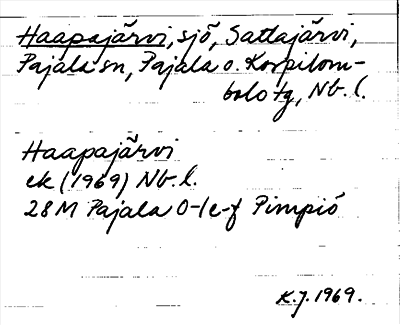 Haapajärvi, sjö, Sattajärvi,
Pajala sn, Pajala o. Korpilom-
bolo tg, Nb. l.
Haapajärvi
ek (1969) Nb. l.
28M Pajala 0-1e-f Pimpiö
K.J. 1969.